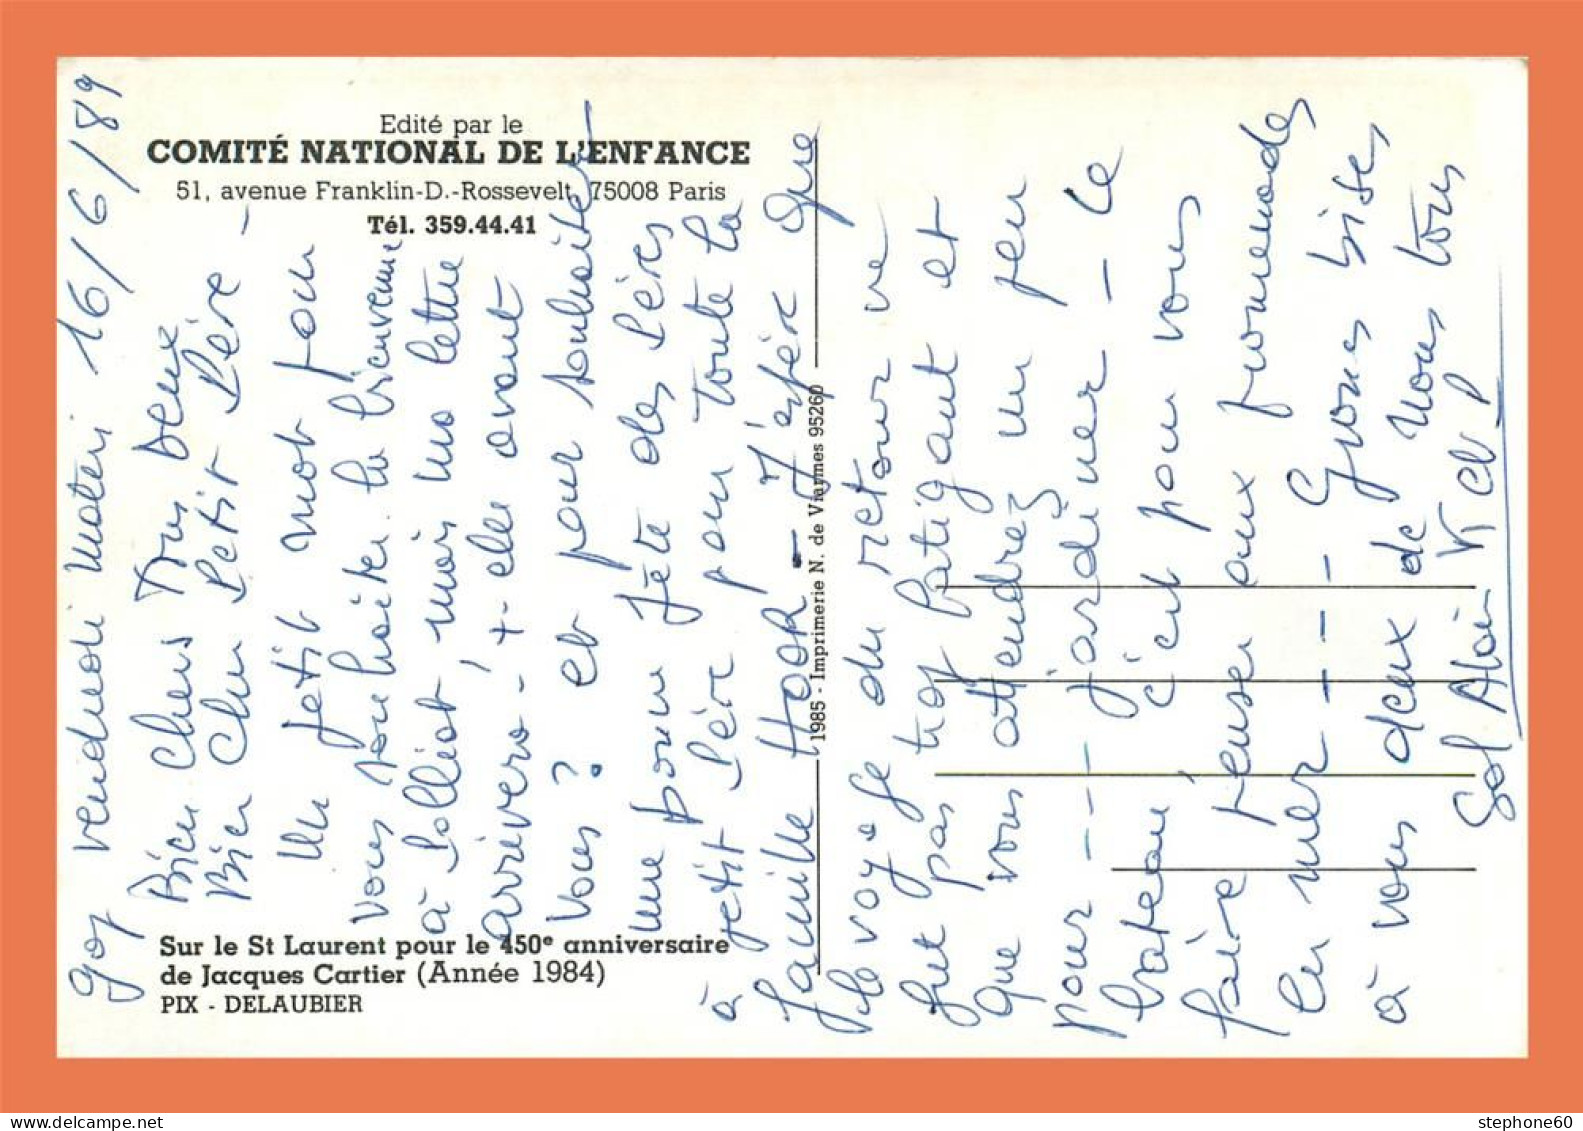 Edité par le
COMITÉ NATIONAL DE L'ENFANCE
51, avenue Franklin-D.-Rossevelt, 75008 Paris
Tél. 359.44.41
Sur le St Laurent pour le 450e anniversaire
de Jacques Cartier (Année 1984)
PIX - DELAUBIER
1985 - Imprimerie N. de Viarmes 95260
Gap vendredi matin 16/6/89
Bien Chers Tous Deux
Bien Cher Petit Père -
Un petit mot pour
vous souhaiter la bienvenue
à, mais ma lettre
arrivera-t-elle avant
vous? et pour souhaiter
une bonne fête des Pères
à petit Père pour toute la
famille - J'espère que
le voyage du retour ne
fut pas trop fatigant et
que vous attendrez un peu
pour --- jardiner - Le
bateau, c'est pour vous
faire penser aux promenades
en mer ---- Gros bises
à vous deux de nous tous
Sol Alain Vick
stephone60